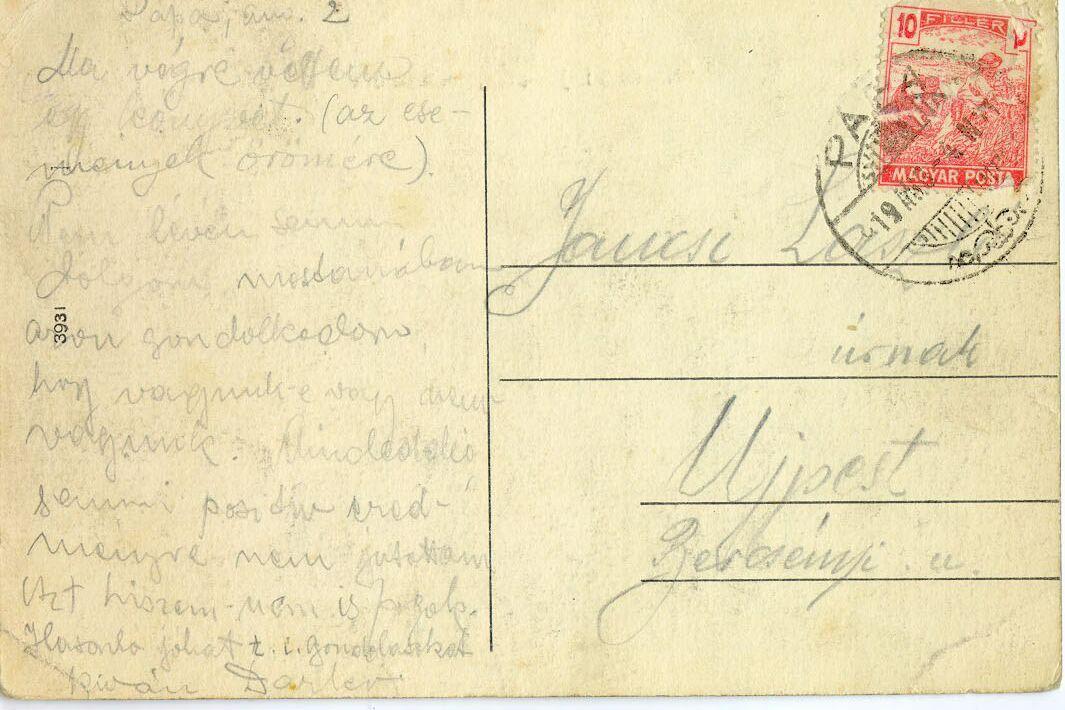 Pápa, jan. 2
Ma végre vettem
egy könyvet. (az ese-
mények örömére).
Nem lévén semmi
dolgom, mostanában
azon gondolkodom,
hogy vagyunk-e vagy nem
vagyunk. Mindeddig
semmi pozitiv ered-
ményre nem jutottam
Azt hiszem nem is fogok.
Hasonló jókat t. i. gondolatokat
kíván
3931
10 FILLER
MAGYAR POSTA
PÁPA
919
Jancsi
úrnak
Ujpest
Bercsényi u.